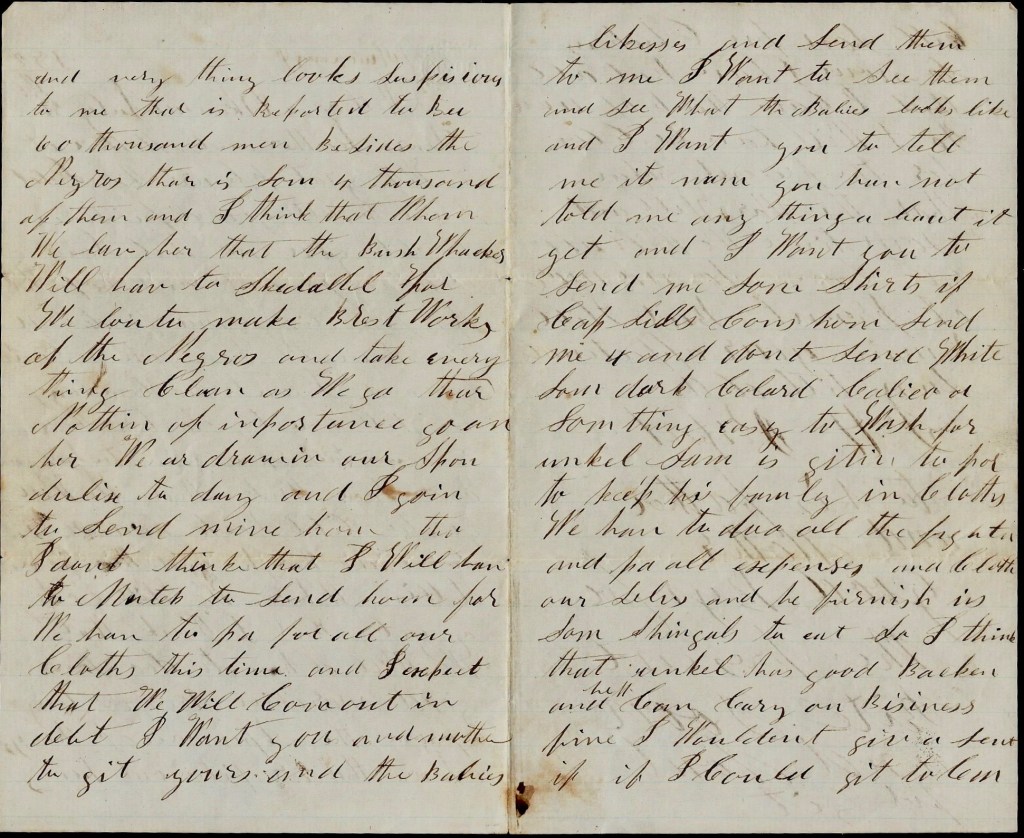 and very thing looks suspisious
to me that is Reported to Bee
60 thousand men Besides the
Negros thar is som 4 thousand
of them and I think that When
We leav her that the Bush Whackers
Will hav to Skedallel For
We
make Brest Works
of the Negros and take every
thing Clean as We go thar
Nothin of inportance go an
her We ar drawin our Spon
dulix to day and I goin
to Send mine hom tho
I dont thinke that I Will hav
to Mutch to send hom for
We hav to pa for all our
Cloths this time and I expect
that We Will Com out in
debt I Want you and mother
to git yours and the Babies
likesses and Send them
to me I Want to See them
and see What the Babies looks like
and I Want you to tell
me its nam you hav not
told me any thing a bout it
yet and I Want you to
Send me Som Shirts if
Cap Sills Coms hom Send
me 4 and dont Send White
Som dark Colard Calico or
Somthing easy to Wash for
unkel Sam is gitin to por
to keep his family in Cloths
We hav to doo all the
and pa all expenses and Cloth
our Selvs and he firnish us
Som Shingals to eat So I think
that unkel has good Backen
and he'll Can Cary on Bisiness
fine I Wouldent giv a Sent
if if I Could git to Com